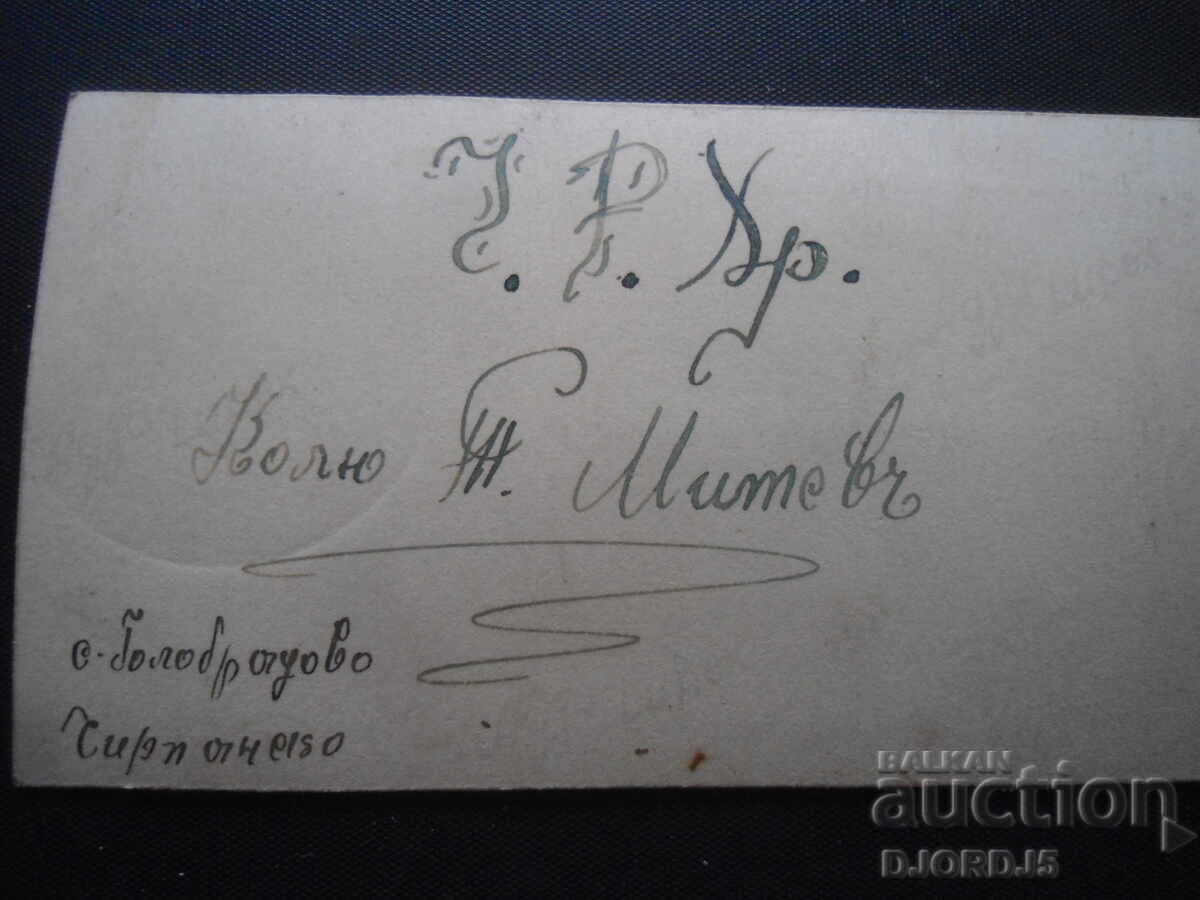 Ч. Р. Хр.
Колю Т. Митевъ
с. Голобрадово
Чирпанско
BALKAN
auction
DJORDJ5